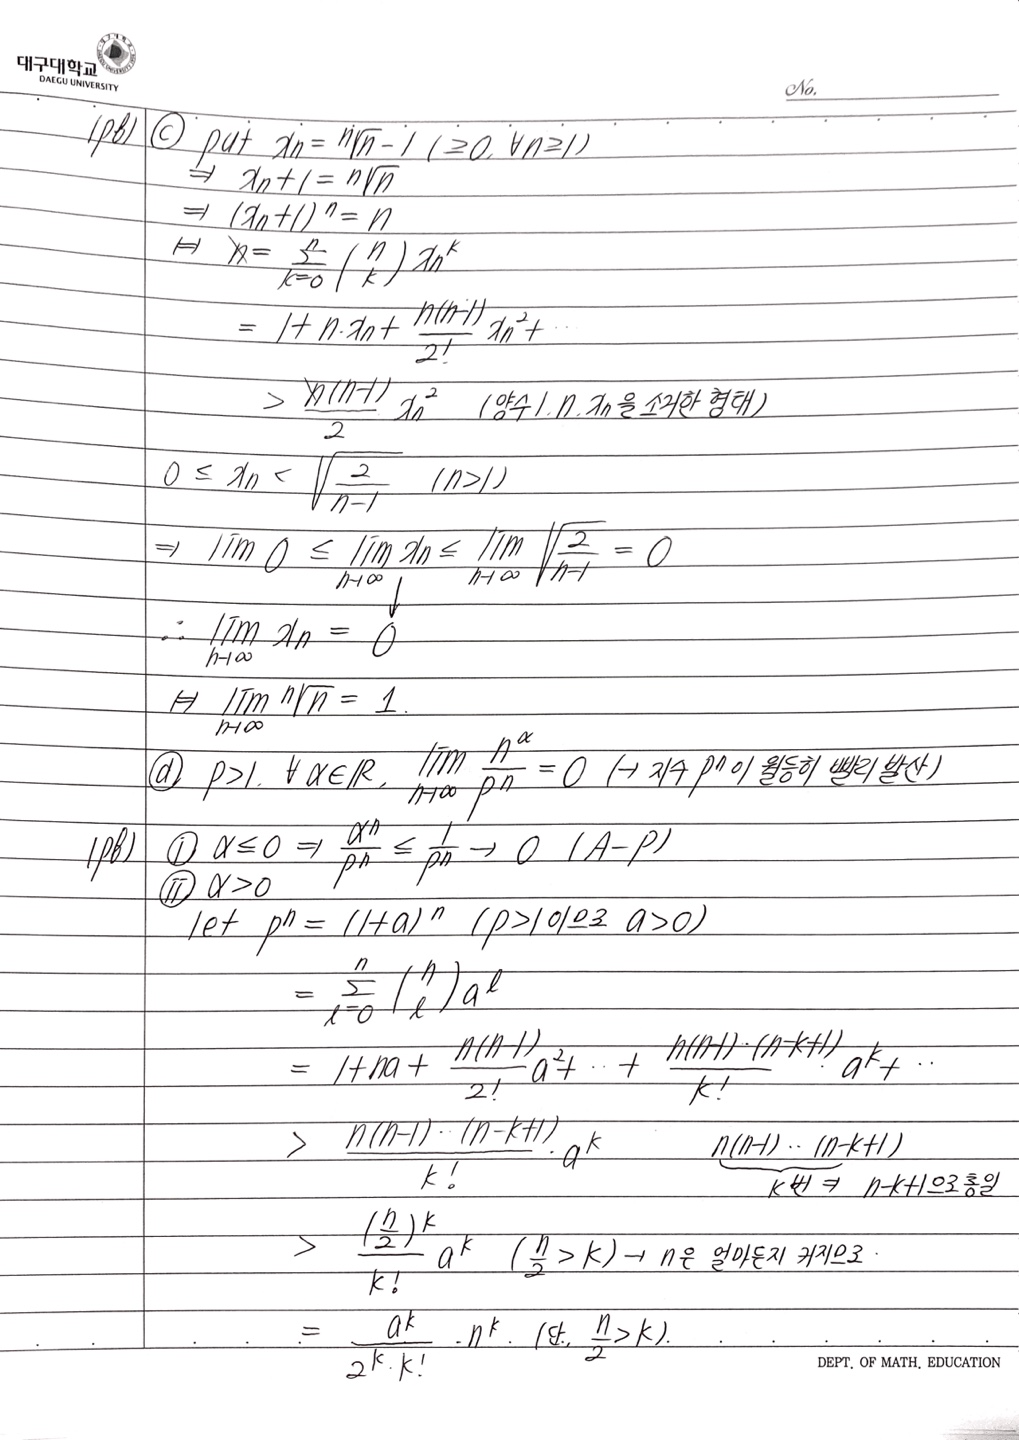 대구대학교
DAEGU UNIVERSITY
No.
(pf) ⓒ put xn = ⁿ√n - 1 (≥0, ∀n≥1)
⇒ xn+1 = ⁿ√n
⇒ (xn+1)ⁿ = n
⊨ n = Σ_{k=0}^{n} (n k) xn^k
= 1 + n·xn + n(n-1)/2! xn² + ···
> n(n-1)/2 xn² (양수 1, n·xn을 소거한 형태)
0 ≤ xn < √(2/(n-1)) (n>1)
⇒ lim 0 ≤ lim_{n→∞} xn ≤ lim_{n→∞} √(2/(n-1)) = 0
∴ lim_{n→∞} xn = 0
⊨ lim_{n→∞} ⁿ√n = 1.
ⓓ p>1, ∀α∈ℝ, lim_{n→∞} n^α/pⁿ = 0 (→ 지수 pⁿ이 월등히 빨리 발산)
(pf) ⓘ α≤0 ⇒ αⁿ/pⁿ ≤ 1/pⁿ → 0 (A-P)
ⓘⓘ α>0
let pⁿ = (1+a)ⁿ (p>1이므로 a>0)
= Σ_{l=0}^{n} (n l) a^l
= 1 + na + n(n-1)/2! a² + ·· + n(n-1)··(n-k+1)/k! a^k + ··
> n(n-1)··(n-k+1)/k! · a^k n(n-1)··(n-k+1)
k번 ⇒ n-k+1으로 통일
> (n/2)^k/k! a^k (n/2 > k) → n은 얼마든지 커지므로.
= a^k/(2^k·k!) · n^k. (단, n/2 > k).
DEPT. OF MATH. EDUCATION